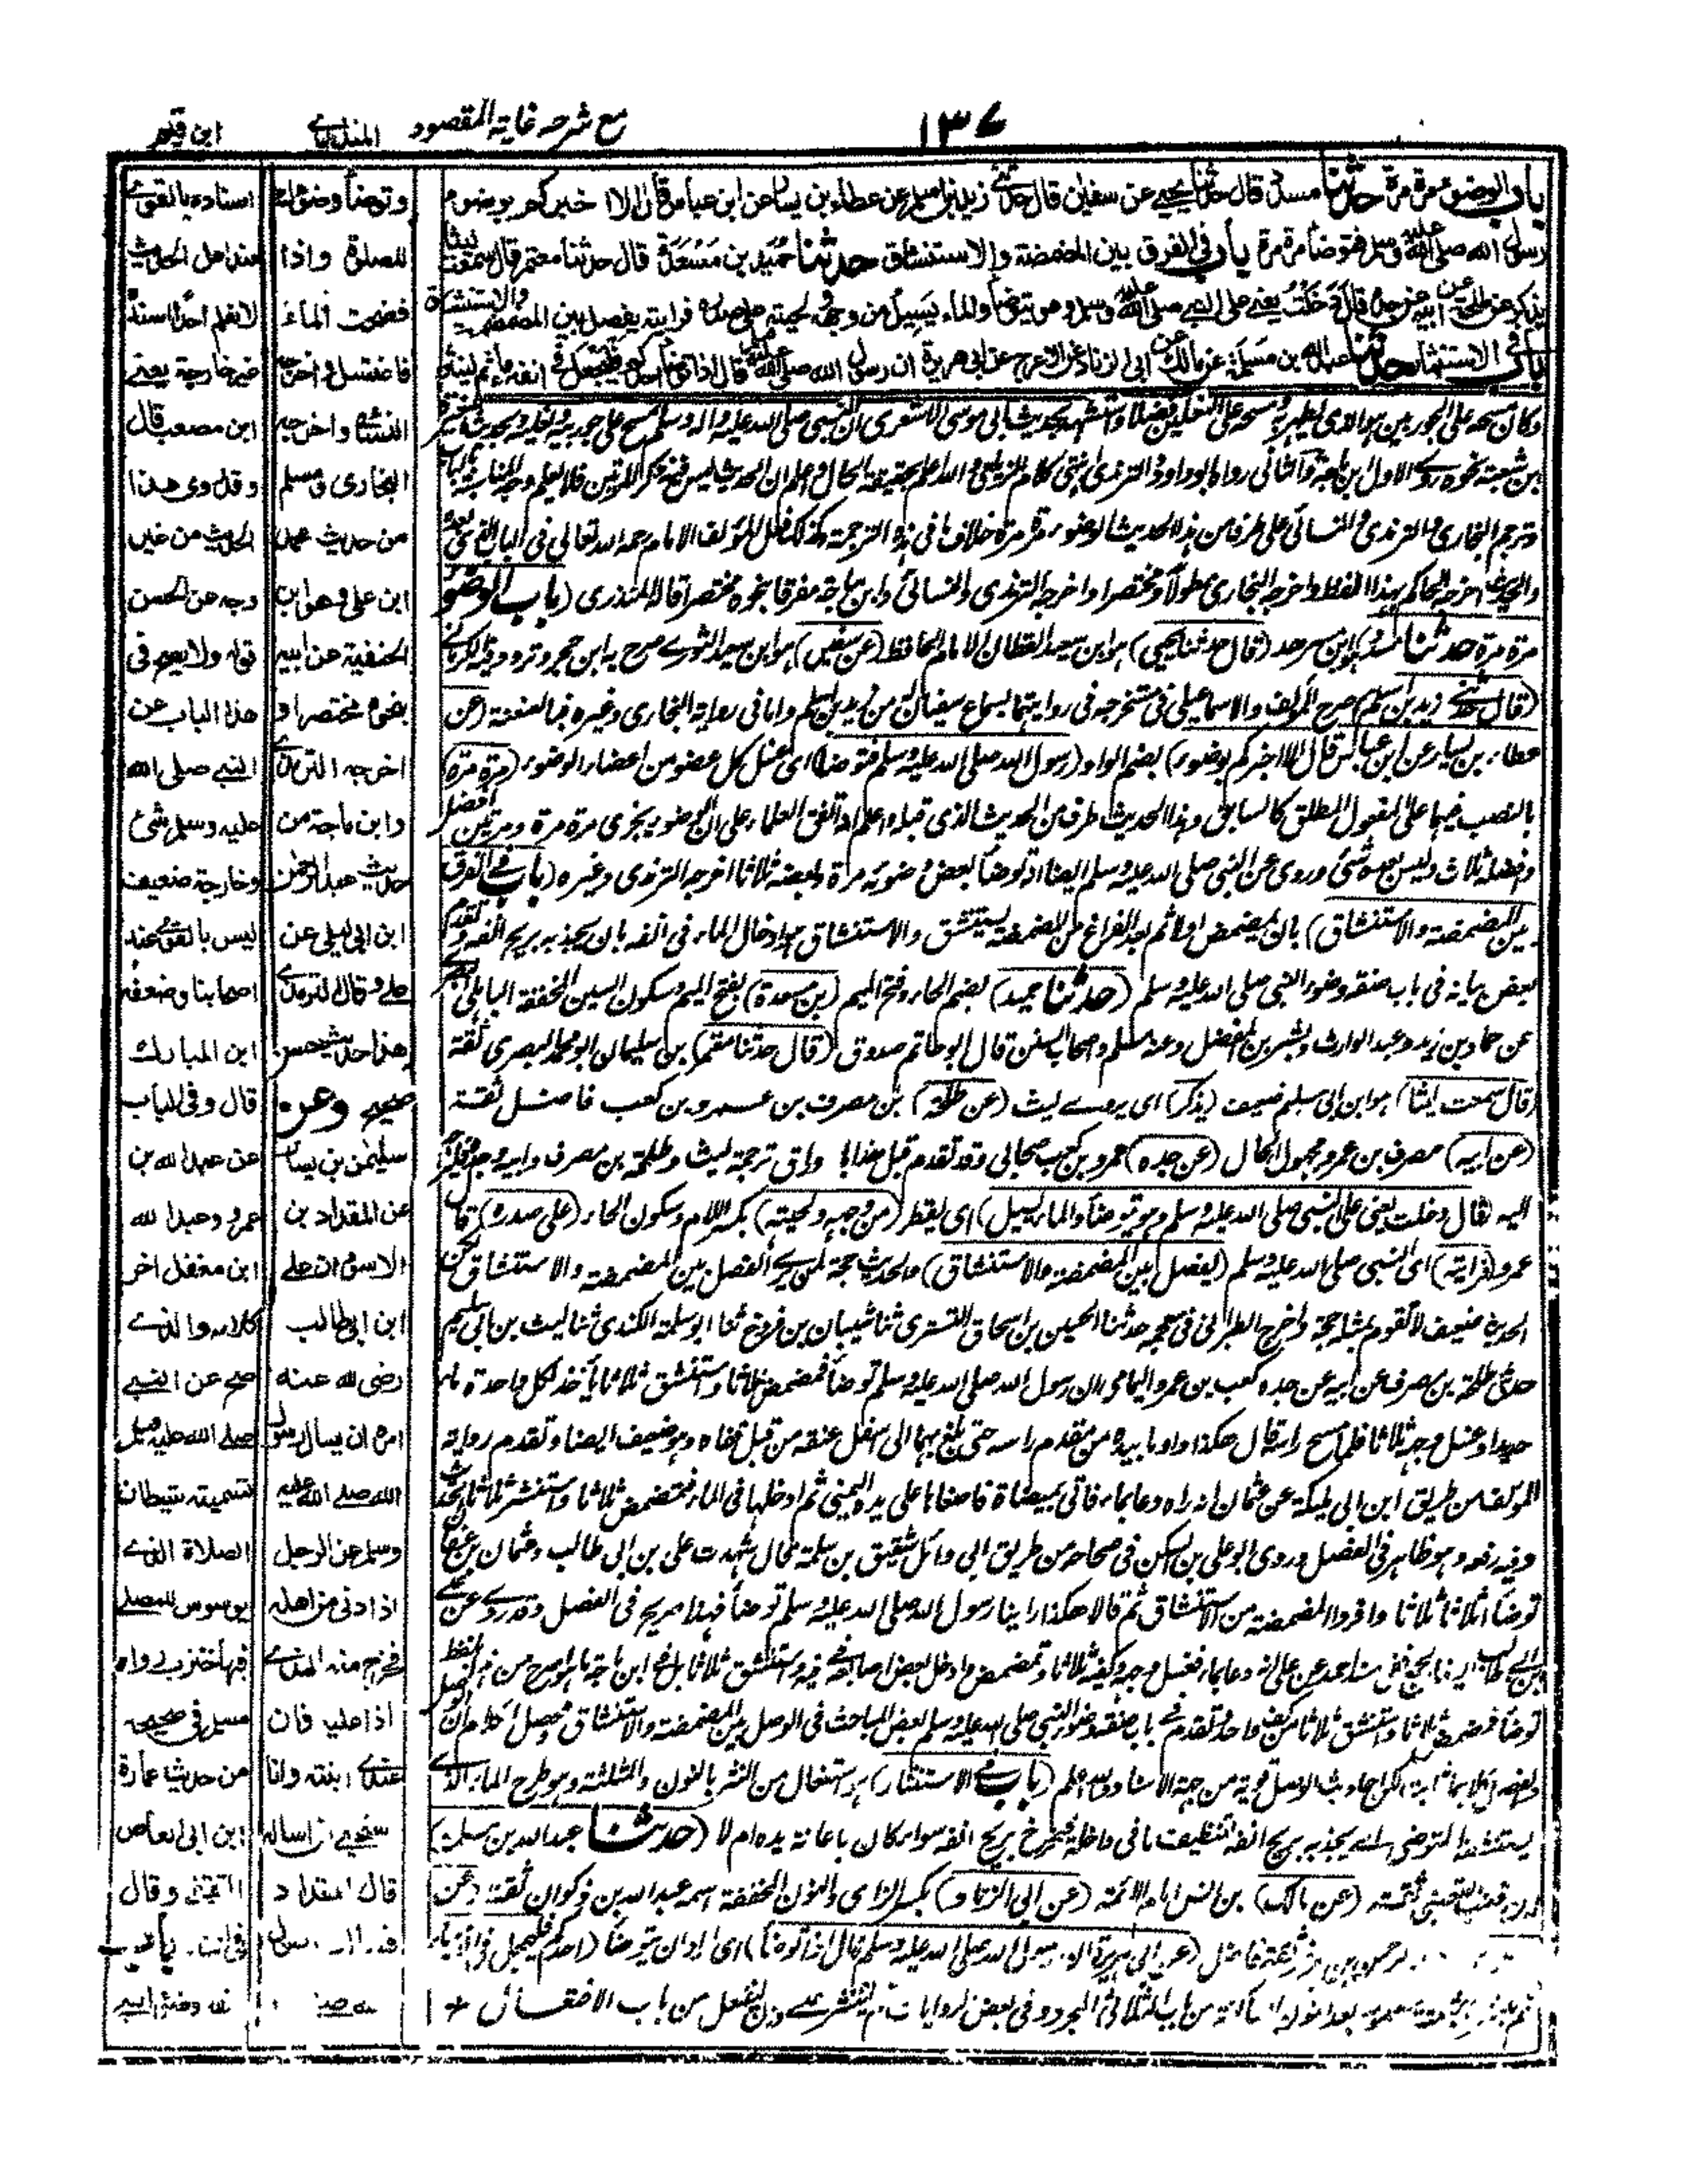 ١٣٧
مع شرحه غاية المقصود
المنذري
ابن قيم
باب الوضوء مرة مرة حدثنا مسدد قال حدثنا يحيى عن سفين قال حدثني زيد بن اسلم عن عطاء بن يسار عن ابن عباس قال الا اخبركم بوضوء
رسول الله صلى الله عليه وسلم فتوضأ مرة مرة باب في الفرق بين المضمضة والاستنشاق حدثنا حميد بن مسعدة قال حدثنا معتمر قال سمعت ليثا
يذكر عن طلحة عن ابيه عن جده قال دخلت يعني على النبي صلى الله عليه وسلم وهو يتوضأ والماء يسيل من وجهه ولحيته على صدره فرايته يفصل بين المضمضة والاستنشاق
باب في الاستنثار حدثنا عبد الله بن مسلمة عن مالك عن ابي الزناد عن الاعرج عن ابي هريرة ان رسول الله صلى الله عليه وسلم قال اذا توضأ احدكم فليجعل في انفه ماء ثم لينثر
وكان مسحه على الجوربين هو الذي يطهر به ومسحه على النعلين فضلا واستشهد بحديث ابي موسى الاشعري ان النبي صلى الله عليه واله وسلم مسح على جوربيه ونعليه وبحديث المغيرة
بن شعبة نحوه روى الاول ابن ماجة والثاني رواه ابوداود والترمذي انتهى كلام الزيلعي والله اعلم بحقيقة الحال واعلم ان الحديث ليس فيه ذكر المرتين فلا يعلم وجه المناسبة بالباب
وترجم البخاري والترمذي والنسائي على طرف من هذا الحديث الوضوء مرة مرة خلاف ما في هذه الترجمة وكذلك فعل المؤلف الامام رحمه الله تعالى في الباب الذي بعده
والحديث اخرجه الحاكم بهذا اللفظ واخرجه البخاري مطولا ومختصرا واخرجه الترمذي والنسائي وابن ماجة مفرقا بنحوه مختصرا قاله المنذري (باب الوضوء
مرة مرة حدثنا مسدد) هو ابن مسرهد (قال حدثنا يحيى) هو ابن سعيد القطان الامام الحافظ (عن سفين) هو ابن سعيد الثوري صرح به ابن حجر وتردد فيه الكرماني
(قال حدثني زيد بن اسلم) صرح المؤلف والاسماعيلي في مستخرجه في روايتهما بسماع سفيان له من زيد بن اسلم واما في رواية البخاري وغيره فبالعنعنة (عن
عطاء بن يسار عن ابن عباس قال الا اخبركم بوضوء) بضم الواو (رسول الله صلى الله عليه وسلم فتوضأ) اي غسل كل عضو من اعضاء الوضوء (مرة مرة)
بالنصب فيهما على المفعول المطلق كالسابق وهذا الحديث طرف من الحديث الذي قبله واعلم انه اتفق العلماء على ان الوضوء يجزي مرة مرة ومرتين افضل
وافضله ثلاث وليس بعده شيء وروي عن النبي صلى الله عليه وسلم ايضا انه توضأ بعض وضوئه مرة وبعضه ثلاثا اخرجه الترمذي وغيره (باب في الفرق
بين المضمضة والاستنشاق) بان يمضمض اولا ثم بعد الفراغ من المضمضة يستنشق والاستنشاق هو ادخال الماء في انفه بان يجذبه بريح انفه وتقدم
بعض بيانه في باب صفة وضوء النبي صلى الله عليه وسلم (حدثنا حميد) بضم الحاء وفتح الميم (بن مسعدة) بفتح الميم وسكون السين المخففة الباهلي البصري
عن حماد بن زيد وعبد الوارث وبشر بن المفضل وعنه مسلم واصحاب السنن قال ابو حاتم صدوق (قال حدثنا معتمر) بن سليمان ابو محمد البصري ثقة
(قال سمعت ليثا) هو ابن ابي سليم ضعيف (يذكر) اي يروي ليث (عن طلحة) بن مصرف بن عمرو بن كعب فاضل ثقة
(عن ابيه) مصرف بن عمرو مجهول الحال (عن جده) عمرو بن كعب صحابي وقد تقدم قبل هذا باوراق ترجمة ليث وطلحة بن مصرف وابيه وجده فليرجع
اليه (قال دخلت يعني على النبي صلى الله عليه وسلم وهو يتوضأ والماء يسيل) اي يقطر (من وجهه ولحيته) بكسر اللام وسكون الحاء (على صدره) قال
عمرو (فرايته) اي النبي صلى الله عليه وسلم (يفصل بين المضمضة والاستنشاق) والحديث حجة لمن يرى الفصل بين المضمضة والاستنشاق لكن
الحديث ضعيف لا تقوم بمثله حجة واخرج الطبراني في معجمه حدثنا الحسين بن اسحاق التستري ثنا شيبان بن فروخ ثنا ابو سلمة الكندي ثنا ليث بن ابي سليم
حدثني طلحة بن مصرف عن ابيه عن جده كعب بن عمرو اليامي ان رسول الله صلى الله عليه وسلم توضأ فمضمض ثلاثا واستنشق ثلاثا يأخذ لكل واحدة ماء
جديدا وغسل وجهه ثلاثا فلما مسح راسه قال هكذا واومأ بيديه من مقدم راسه حتى بلغ بهما الى اسفل عنقه من قبل قفاه وهو ضعيف ايضا وتقدم رواية
المؤلف من طريق ابن ابي مليكة عن عثمان انه راه دعا بماء فاتي بميضاة فاصغاها على يده اليمنى ثم ادخلها في الماء فتمضمض ثلاثا واستنثر ثلاثا الحديث
وفيه رفعه وهو ظاهر في الفصل وروى ابو علي بن السكن في صحاحه من طريق ابي وائل شقيق بن سلمة قال شهدت علي بن ابي طالب وعثمان بن عفان
توضأ ثلاثا ثلاثا وافردا المضمضة من الاستنشاق ثم قالا هكذا راينا رسول الله صلى الله عليه وسلم توضأ فهذا صريح في الفصل وقد روي عن علي
بن ابي طالب ايضا الجمع ففي مسند احمد عن علي انه دعا بماء فغسل وجهه وكفيه ثلاثا وتمضمض وادخل بعض اصابعه في فيه واستنشق ثلاثا بل في ابن ماجة ما هو اصرح من هذا بلفظ
توضأ فمضمض ثلاثا واستنشق ثلاثا من كف واحد وتقدم في باب صفة وضوء النبي صلى الله عليه وسلم بعض المباحث في الوصل بين المضمضة والاستنشاق ومحصل الكلام ان الوصل
والفصل كلاهما ثابت لكن احاديث الوصل قوية من جهة الاسناد والله اعلم (باب في الاستنثار) هو استفعال من النثر بالنون والمثلثة وهو طرح الماء الذي
يستنشقه المتوضي اي يجذبه بريح انفه لتنظيف ما في داخله فيخرج بريح انفه سواء كان باعانة يده ام لا (حدثنا عبد الله بن مسلمة)
بن قعنب القعنبي ثقة (عن مالك) بن انس امام الائمة (عن ابي الزناد) بكسر الزاي والنون المخففة اسمه عبد الله بن ذكوان ثقة (عن
ثقة فاضل (عن ابي هريرة ان رسول الله صلى الله عليه وسلم قال اذا توضأ) اي اراد ان يتوضأ (احدكم فليجعل في انفه ماء
ثم لينثر) من باب الثلاثي المجرد وفي بعض الروايات ثم لينتثر على وزن ليفتعل من باب الافتعال +
وتوضأ وضوءك
للصلوة واذا
فضخت الماء
فاغتسل واخرجه
النسائي واخرجه
البخاري ومسلم
من حديث محمد
ابن علي وهو ابن
الحنفية عن ابيه
بنحوه مختصرا و
اخرجه الترمذي
وابن ماجة من
حديث عبد الرحمن
ابن ابي ليلى عن
علي وقال الترمذي
هذا حديث حسن
صحيح وعن
سليمن بن يسار
عن المقداد بن
الاسود ان علي
ابن ابي طالب
رضي الله عنه
امره ان يسال رسول
الله صلى الله عليه
وسلم عن الرجل
اذا دنى من اهله
فخرج منه المذي
ماذا عليه فان
عندي ابنته وانا
استحيي ان اساله
قال المقداد
فسألت رسول
الله صلى
اسناده بالقوي
عند اهل الحديث
لا نعلم احدا اسنده
غير خارجة يعني
ابن مصعب قال
وقد روي هذا
الحديث من غير
وجه عن الحسن
قوله ولا يصح في
هذا الباب عن
النبي صلى الله
عليه وسلم شئ
وخارجة ضعيف
ليس بالقوي عند
اصحابنا وضعفه
ابن المبارك
قال وفي الباب
عن عبد الله بن
عمرو وعبد الله
ابن مغفل اخر
كلامه والذي
صح عن النبي
صلى الله عليه وسلم
تسميته شيطان
الصلاة الذي
يوسوس للمصلي
فيها خنزب رواه
مسلم في صحيحه
من حديث عمارة
ابن ابي العاص
الثقفي وقال
باب